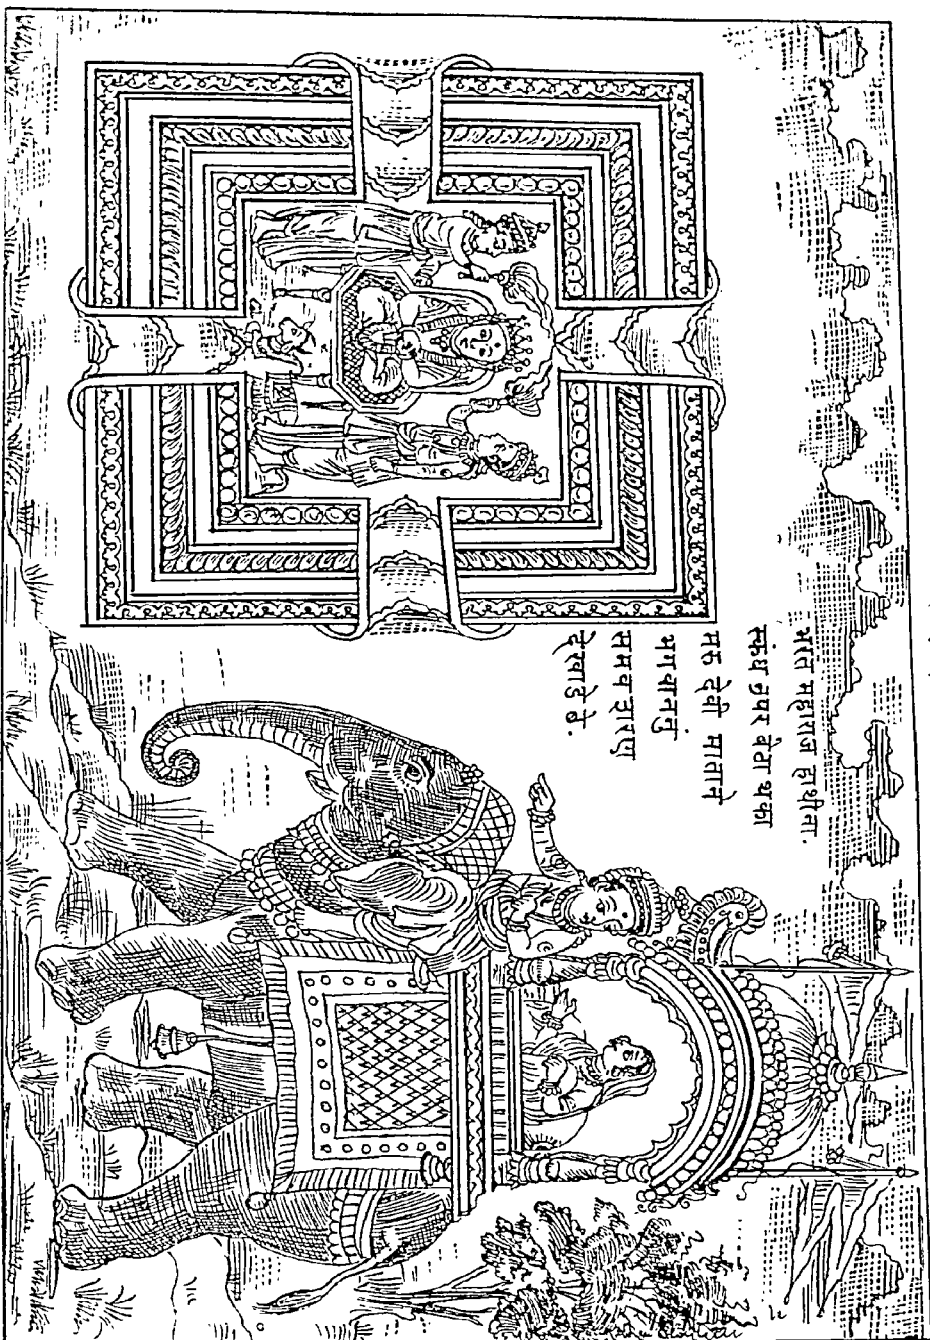 भरत महाराज हाथीना
स्कंध उपर बेठा थका
मरु देवी माताने
भगवाननुं
समवसरण
देखाडे छे.